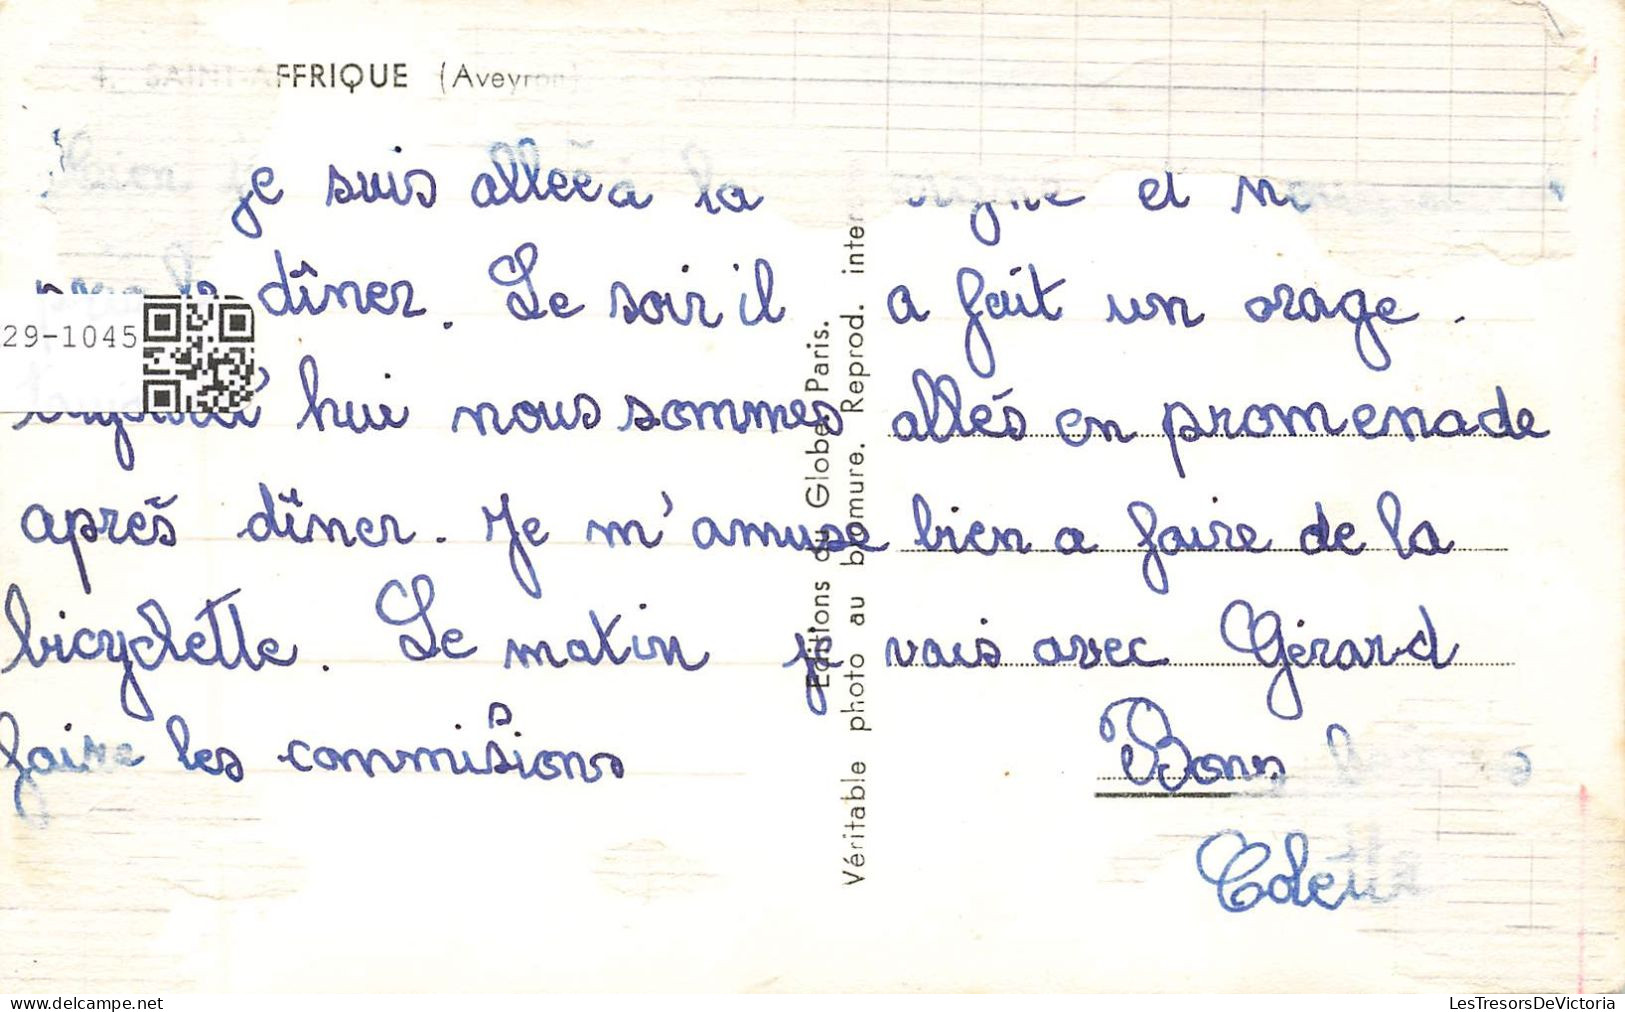 4. SAINT-AFFRIQUE (Aveyron)
je suis alleèa la et
dîner. Le soir il a fait un orage.
29-1045
hui nous sommes allés en promenade
après dîner. Je m'amuse bien a faire de la
bicyclette. Le matin je vais avec Gérard
faire les commissions
Bons
Colette
Editions du Globe, Paris.
Véritable photo au bromure. Reprod. inter
LesTresorsDeVictoria
www.delcampe.net